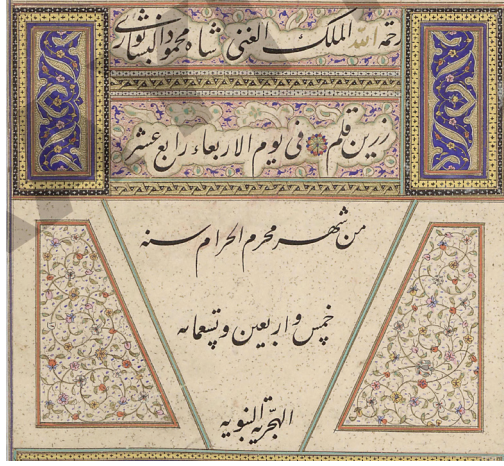 رحمة الله الملك الغنى شاه محمود النيشابورى
زرين قلم فى يوم الاربعاء رابع عشر
من شهر محرم الحرام سنه
خمس و اربعين و تسعمايه
الهجرية النبويه